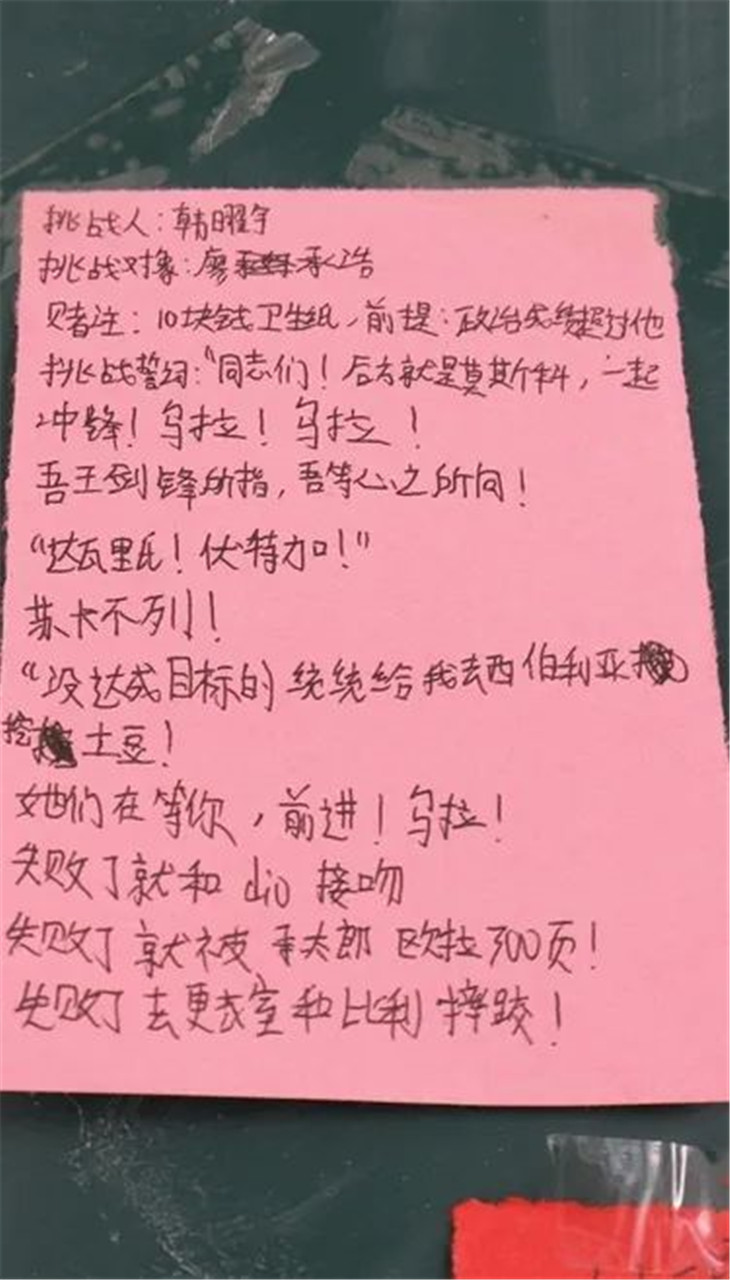 挑战人：韩曜宇
挑战对象：廖承浩
赌注：10块钱卫生纸，前提：政治成绩超过他
挑战誓词：“同志们！后方就是莫斯科，一起
冲锋！乌拉！乌拉！
吾王剑锋所指，吾等心之所向！
“达瓦里氏！伏特加！”
苏卡不列！
“没达成目标的统统给我去西伯利亚
挖土豆！
她们在等你，前进！乌拉！
失败了就和dio接吻
失败了就被承太郎欧拉300页！
失败了去更衣室和比利摔跤！